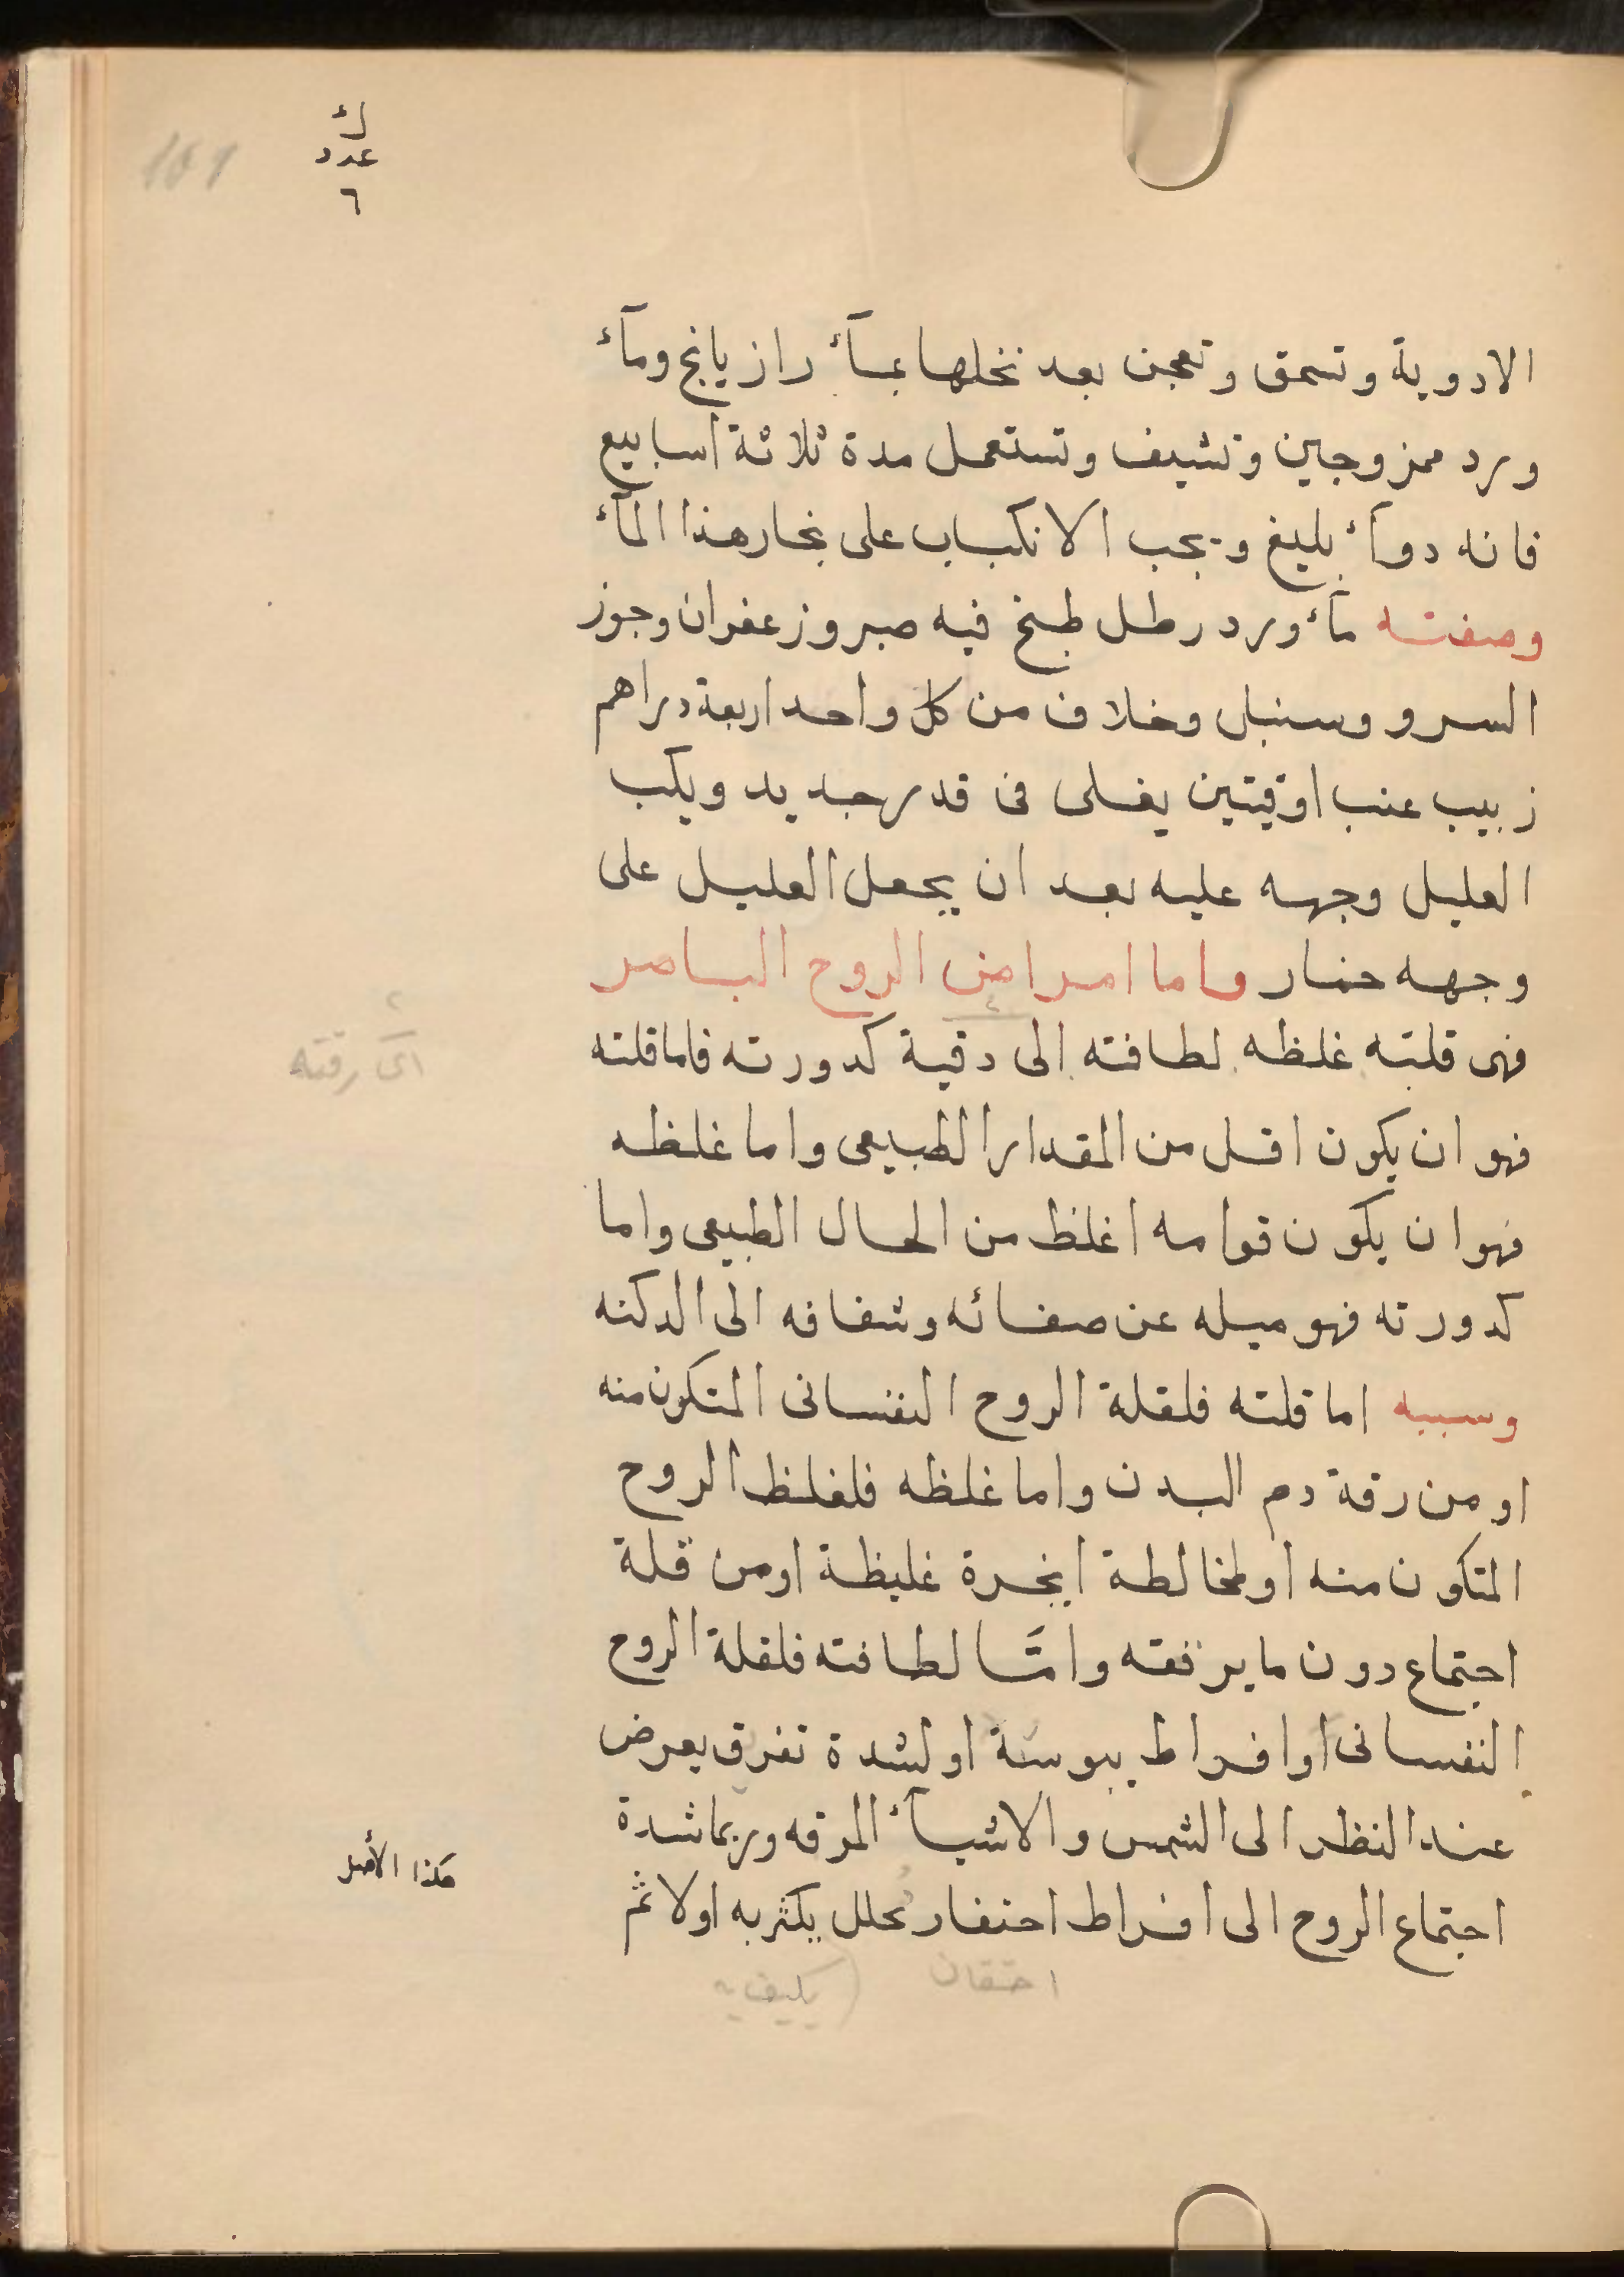 ك
عدد
٦
الادوية وتسحق وتعجن بعد نخلها بمآء رازيانج ومآء
ورد ممزوجين وتشيف وتستعمل مدة ثلاثة اسابيع
فانه دوآء بليغ ويجب الانكباب على بخار هذا المآء
وصفته مآء ورد رطل طبخ فيه صبر وزعفران وجوز
السرو وسنبل وخلاف من كل واحد اربعة دراهم
زبيب عنب اوقيتين يغلى فى قدر جديد ويكب
العليل وجهه عليه بعد ان يجعل العليل على
وجهه خمار واما امراض الروح الباصر
فهى قلته غلظه لطافته الى دقية كدورته فاما قلته
اى رقته
فهو ان يكون اقل من المقدار الطبيعى واما غلظه
فهو ان يكون قوامه اغلظ من الحال الطبيعى واما
كدورته فهو ميله عن صفائه وشفافه الى الدكنه
وسببه اما قلته فلقلة الروح النفسانى المتكون منه
او من رقة دم البدن واما غلظه فلغلظ الروح
المتكون منه او لمخالطة ابخرة غليظة او من قلة
اجتماع دون ما يرققه وامّا لطافته فلقلة الروح
النفسانى او افراط يبوسة او لشدة تفرق يعرض
عند النظر الى الشمس والاشيآء المرقه وربما شدة
هكذا الأصل
اجتماع الروح الى افراط احتفار محلل يكثر به اولا ثم
احتقان